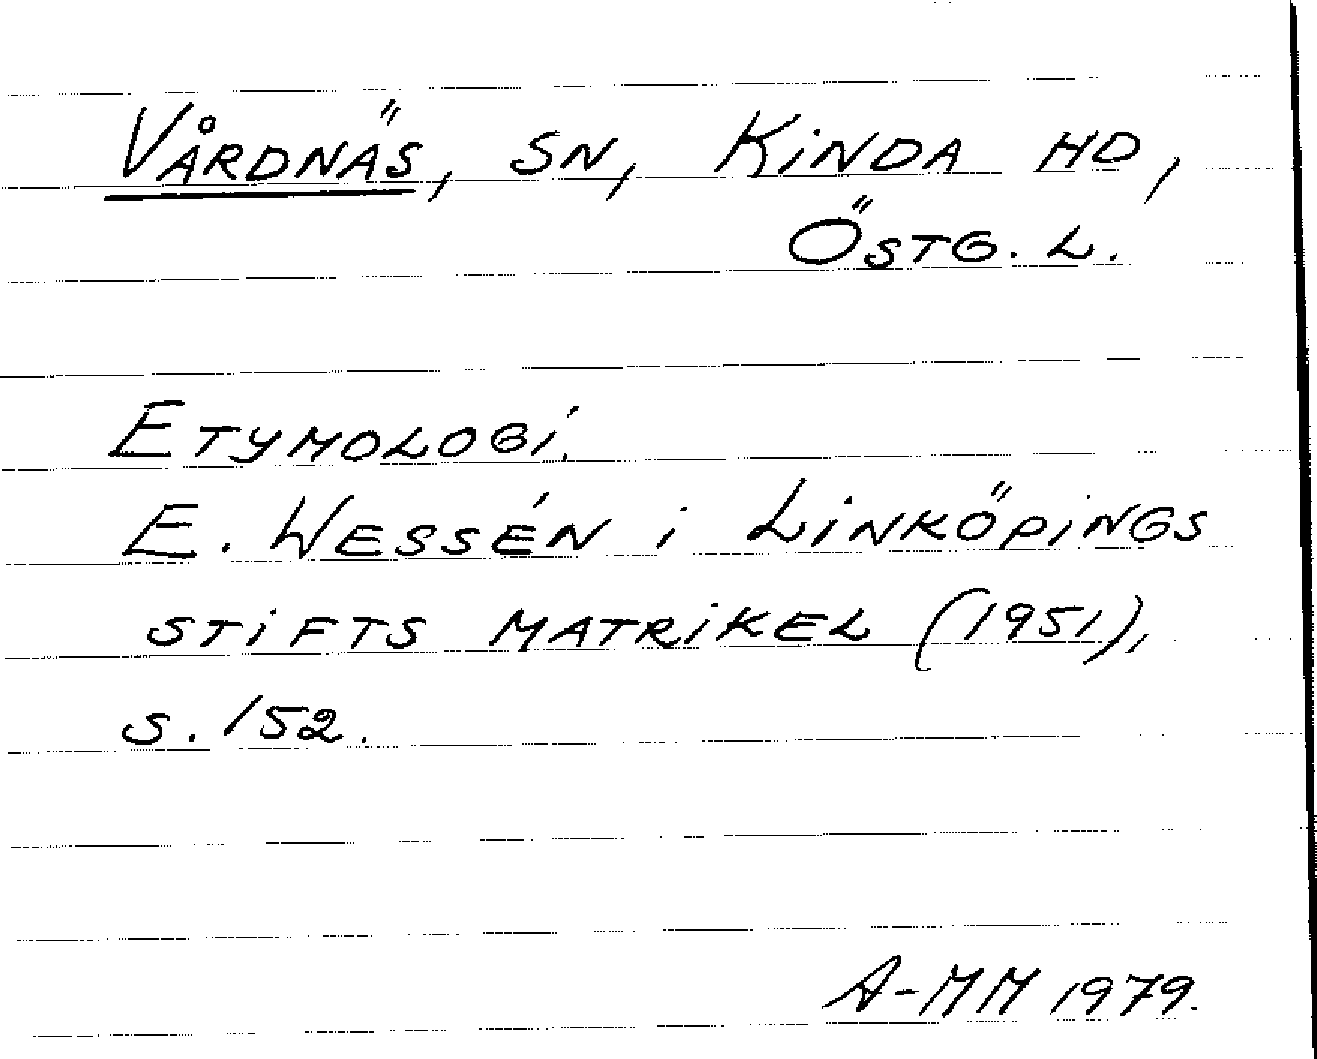 VÅRDNÄS, SN, KINDA HD,
ÖSTG. L.
ETYMOLOGI.
E. WESSÉN i LINKÖPINGS
STIFTS MATRIKEL (1951),
S. 152.
A-MM 1979.